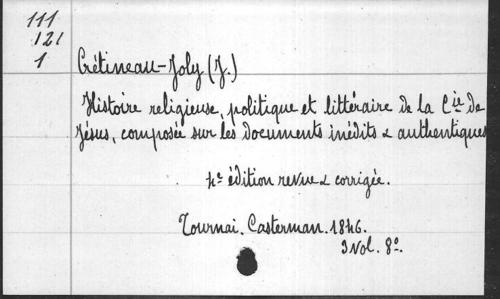 111
121
1
Crétineau-Joly (J.)
Histoire religieuse, politique et littéraire de la Cie de
Jésus, composée sur les documents inédits & authentiques
4e édition revue & corrigée.
Tournai. Casterman. 1846.
3 vol. 8o.